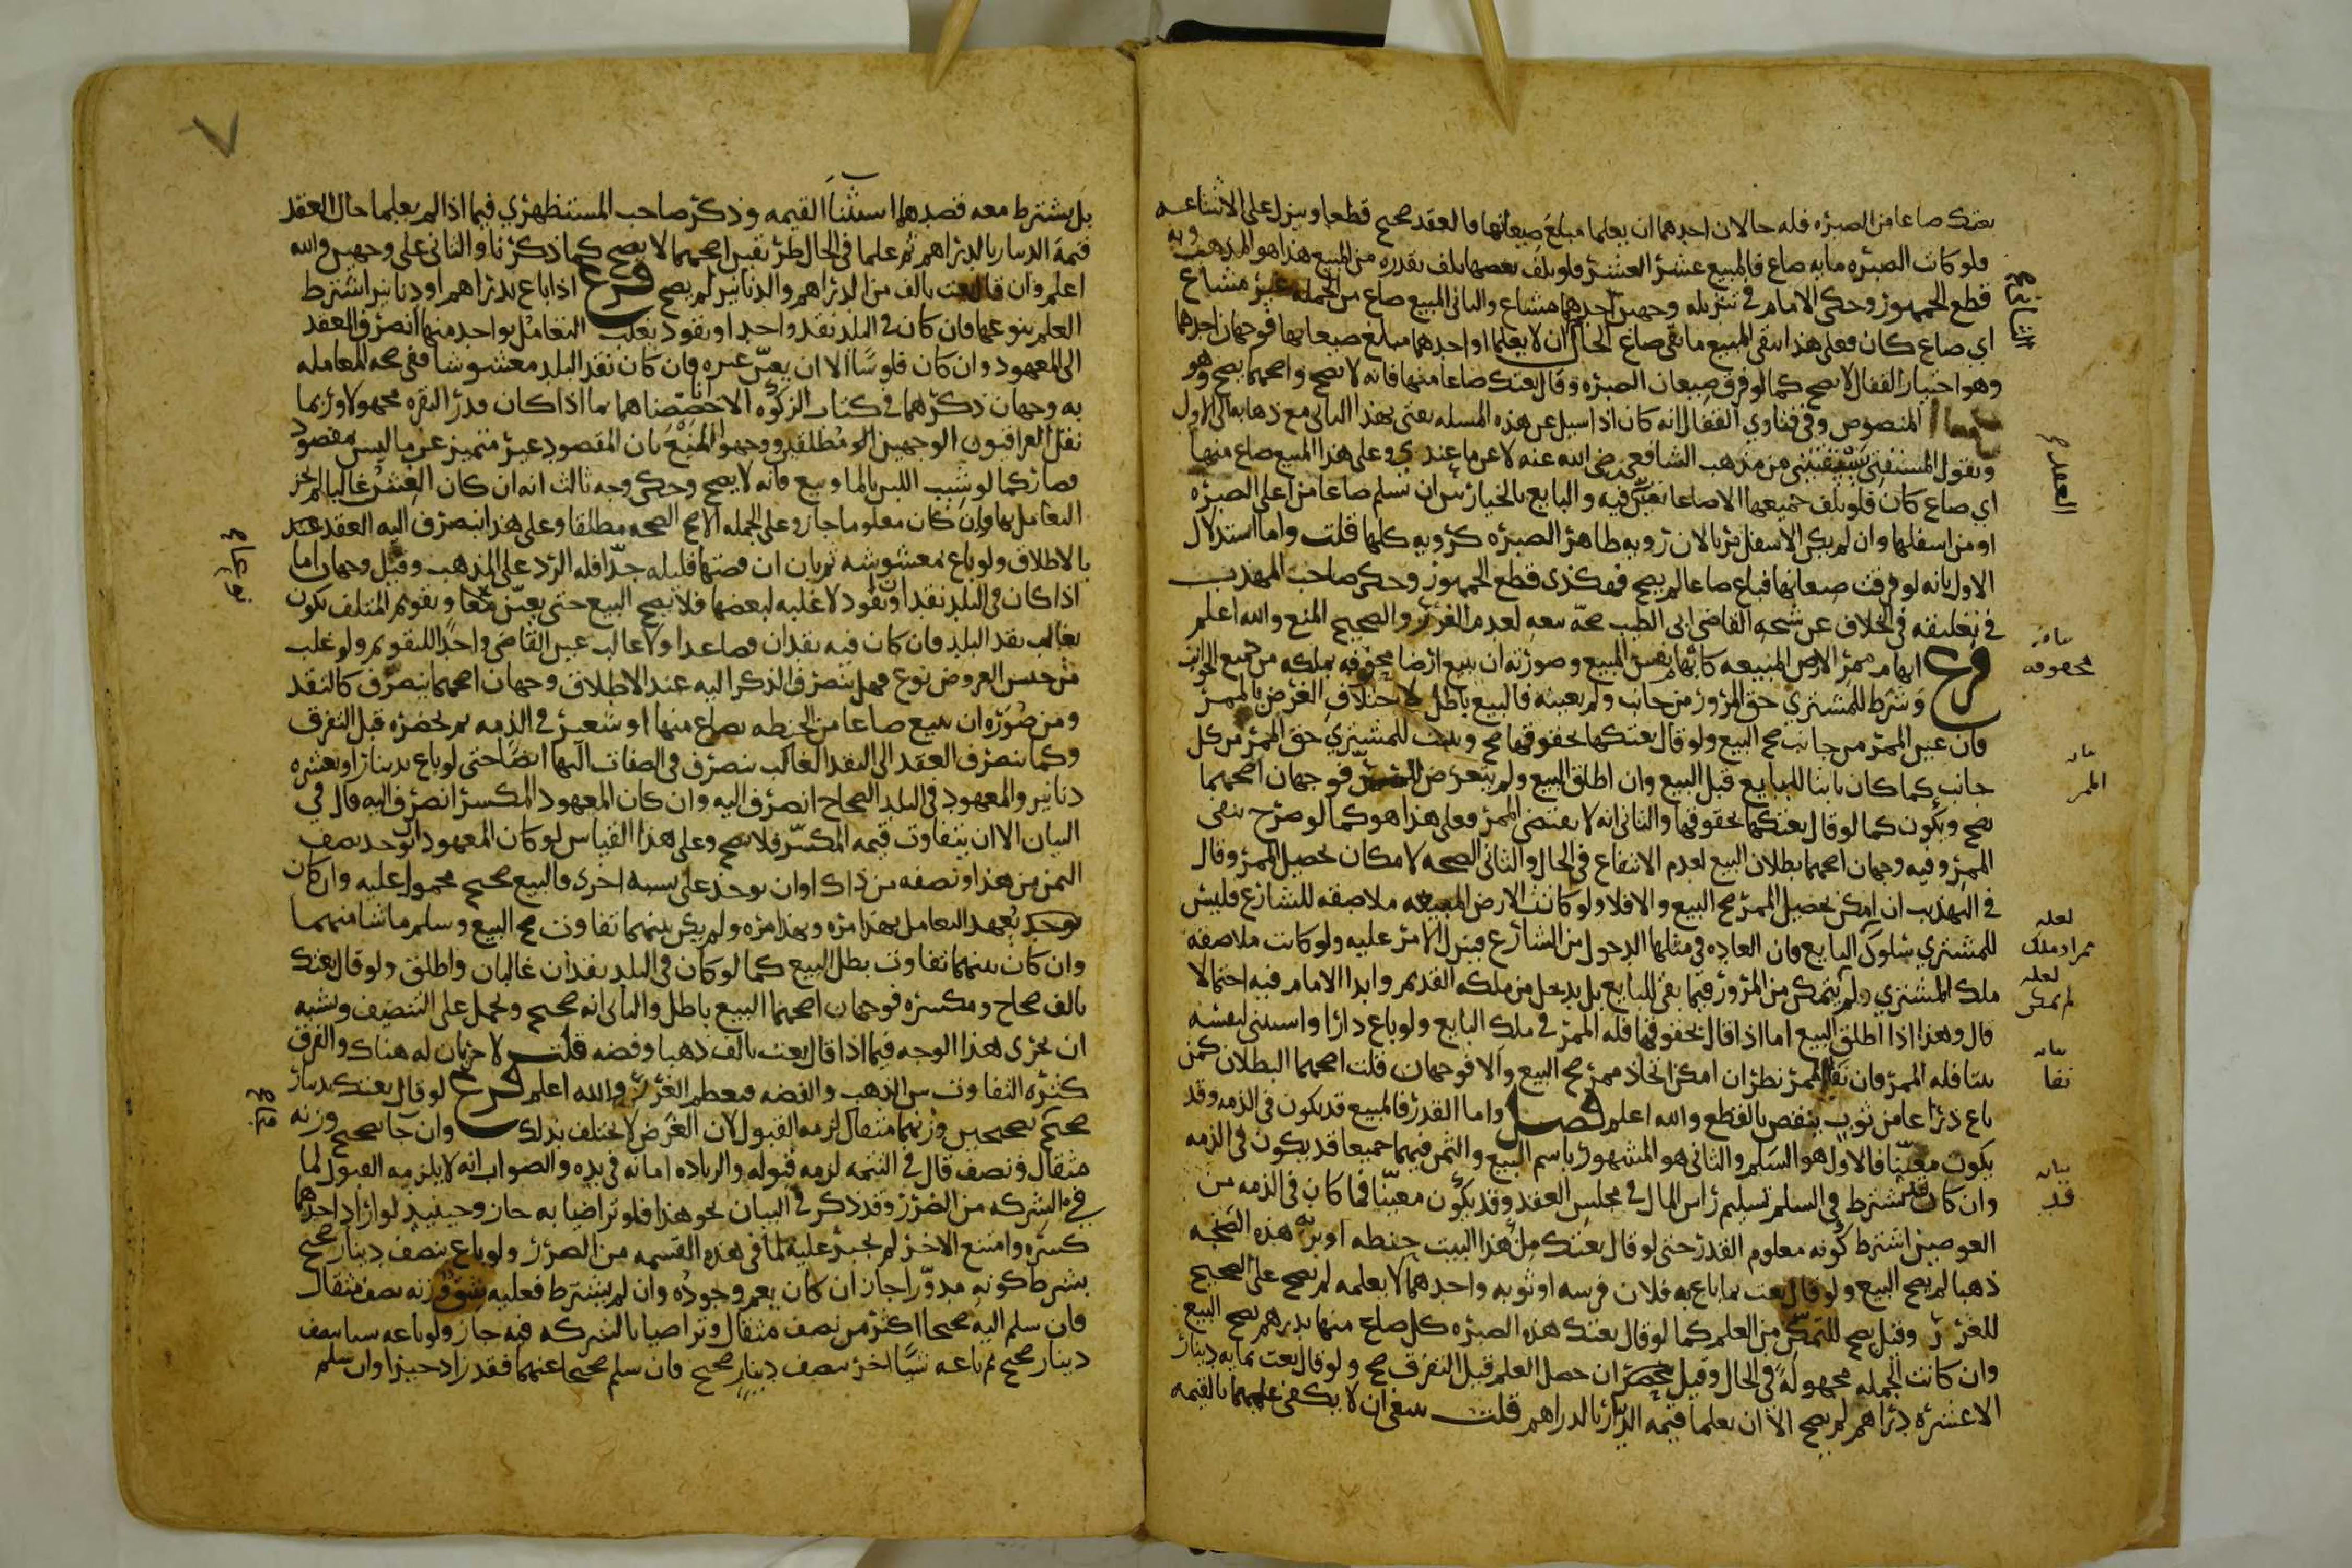 بعتك صاعا من الصبره فله حالان احدهما ان يعلما مبلغ صيعانها فالعقد صحيح قطعا وينزل على الاشاعه
فلو كانت الصبره مايه صاع فالمبيع عشر العشر فلو تلف بعضها تلف بقدره من المبيع هذا هو المذهب وبه
قطع الجمهور وحكى الامام في تنزيله وجهين احدهما مشاع والثاني المبيع صاع من الجمله غير مشاع
اي صاع كان فعلى هذا يبقى المبيع ما بقي صاع الحال ان لا يعلما او احدهما مبلغ صيعانها فوجهان احدهما
وهو اختيار القفال لا يصح كما لو فرق صيعان الصبره وقال بعتك صاعا منها فانه لا يصح واصحهما يصح وهو
المنصوص وفي فتاوي القفال انه كان اذا سيل عن هذه المسله يفتي بهذا الثاني مع ذهابه الى الاول
ويقول المستفتي يستفتيني من مذهب الشافعي رضي الله عنه لا عن ما عندي وعلى هذا المبيع صاع منها
اي صاع كان فلو تلف جميعها الا صاعا تعين فيه والبايع بالخيار بين ان يسلم صاعا من اعلى الصبره
او من اسفلها وان لم يكن الاسفل مريا لان رويه ظاهر الصبره كرويه كلها قلت واما استدلال
الاول بانه لو فرقت صيعانها فباع صاعا لم يصح فهكذى قطع الجمهور وحكى صاحب المهذب
في تعليقه في الخلاف عن شيخه القاضي ابي الطيب صحه بيعه لعدم الغرر والصحيح المنع والله اعلم
فرع ابهام ممر الارض المبيعه كابهام نفس المبيع وصورته ان يبيع ارضا محفوفه بملكه من جميع الجوانب
وشرط للمشتري حق المرور من جانب ولم يعينه فالبيع باطل لاختلاف الغرض بالممر
فان عين الممر من جانب صح البيع ولو قال بعتكها بحقوقها صح وثبت للمشتري حق الممر من كل
جانب كما كان ثابتا للبايع قبل البيع وان اطلق البيع ولم يتعرض للممر فوجهان اصحهما
يصح ويكون كما لو قال بعتكها بحقوقها والثاني انه لا يقتضي الممر فعلى هذا هو كما لو صرح بنفي
الممر وفيه وجهان اصحهما بطلان البيع لعدم الانتفاع في الحال والثاني الصحه لامكان تحصيل الممر وقال
في التهذيب ان امكن تحصيل الممر صح البيع والا فلا ولو كانت الارض المبيعه ملاصقه للشارع فليس
للمشتري سلوك البايع فان العاده في مثلها الدخول من الشارع فينزل الامر عليه ولو كانت ملاصقه
ملك المشتري ولم يتمكن من المرور فيما بقي للبايع بل يدخل من ملكه القديم وابدا الامام فيه احتمالا
قال وهذا اذا اطلق البيع اما اذا قال بحقوقها فله الممر في ملك البايع ولو باع دارا واستثنى لنفسه
بيتا فله الممر فان نفا الممر نظر ان امكن اتخاذ ممر صح البيع والا فوجهان قلت اصحهما البطلان كمن
باع ذراعا من ثوب ينقص بالقطع والله اعلم فصل واما القدر فالمبيع قد يكون في الذمه وقد
يكون معينا فالاول هو السلم والثاني هو المشهور باسم البيع والثمن فيهما جميعا قد يكون في الذمه
وان كان يشترط في السلم تسليم راس المال في مجلس العقد وقد يكون معينا فما كان في الذمه من
العوضين اشترط كونه معلوم القدر حتى لو قال بعتك مل هذا البيت حنطه او بزنه هذه الصنجه
ذهبا لم يصح البيع ولو قال بعت بما باع به فلان فرسه او ثوبه واحدهما لا يعلمه لم يصح على الصحيح
للغرر وقيل يصح للتمكن من العلم كما لو قال بعتك هذه الصبره كل صاع منها بدرهم يصح البيع
وان كانت الجمله مجهوله في الحال وقيل ان حصل العلم قبل التفرق صح ولو قال بعت بمايه دينار
الا عشره دراهم لم يصح الا ان يعلما قيمه الدينار بالدراهم قلت ينبغي ان لا يكفي علمهما بالقيمه
مشاع
العقد
بيانه
محفوفه
بيان
الممر
لعله
مراد ملك
لعله
لم يمكن
بيانه
نفا
بيانه
قد
٧
بل يشترط معه قصدهما استثنا القيمه وذكر صاحب المستظهري فيما اذا لم يعلما حال العقد
قيمه الدينار بالدراهم ثم علما في الحال طريقين اصحهما لا يصح كما ذكرنا والثاني على وجهين والله
اعلم وان قال بعت بالف من الدراهم والدنانير لم يصح فرع اذا باع بدراهم او دنانير اشترط
العلم بنوعها فان كان في البلد نقد واحد او نقود يغلب التعامل بواحد منها انصرف العقد
الى المعهود وان كان فلوسا الا ان يعين غيره فان كان نقد البلد مغشوشا ففي صحه المعامله
به وجهان ذكرهما في كتاب الزكوه الا انا خصصناهما بما اذا كان قدر النقره مجهولا وربما
نقل العراقيون الوجهين مطلقين ووجهوا المنع بان المقصود غير متميز عن ما ليس مقصود
فصار كما لو شيب اللبن بالما وبيع فانه لا يصح وحكى وجه ثالث انه ان كان الغش غالبا لم يجز
التعامل بها وان كان معلوما جاز وعلى الجمله الاصح الصحه مطلقا وعلى هذا ينصرف اليه العقد عند
الاطلاق ولو باع بمغشوشه ثم بان ان فضتها قليله جدا فله الرد على المذهب وقيل وجهان اما
اذا كان في البلد نقدان او نقود لا غلبه لبعضها فلا يصح البيع حتى يعين وتقويم المتلف يكون
بغالب نقد البلد فان كان فيه نقدان فصاعدا ولا غالب عين القاضي واحدا للتقويم ولو غلب
من جنس العروض نوع فهل ينصرف الذكر اليه عند الاطلاق وجهان اصحهما ينصرف كالنقد
ومن صوره ان يبيع صاعا من الحنطه بصاع منها او شعير في الذمه ثم يحضره قبل التفرق
وكما ينصرف العقد الى النقد الغالب ينصرف في الصفات اليها ايضا حتى لو باع بدينار او بعشره
دنانير والمعهود في البلد الصحاح انصرف اليه وان كان المعهود المكسر انصرف اليه قال في
البيان الا ان يتفاوت قيمه المكسر فلا يصح وعلى هذا القياس لو كان المعهود ان يوخذ نصف
الثمن من هذا ونصفه من ذاك او ان يوخذ على نسبه اخرى فالبيع صحيح محمول عليه وان كان
يعهد التعامل بهذا مره وبهذا مره ولم يكن بينهما تفاوت صح البيع وسلم ما شا منهما
وان كان بينهما تفاوت بطل البيع كما لو كان في البلد نقدان غالبان واطلق ولو قال بعتك
بالف صحاح ومكسره فوجهان اصحهما البيع باطل والثاني انه صحيح ويحمل على التنصيف ويشبه
ان يجري هذا الوجه فيما اذا قال بعت بالف ذهبا وفضه قلت لا جريان له هناك والفرق
كثره التفاوت بين الذهب والفضه فيعظم الغرر والله اعلم فرع لو قال بعتك بدينار
صحيح فجا بصحيحين وزنهما مثقال لزمه القبول لان الغرض لا يختلف بذلك وان جا بصحيح وزنه
مثقال ونصف قال في التتمه لزمه قبوله والزياده امانه في يده والصواب انه لا يلزمه القبول لما
في الشركه من الضرر وقد ذكر في البيان نحو هذا فلو تراضيا به جاز وحينيذ لو اراد احدهما
كسره وامتنع الاخر لم يجبر عليه لما في هذه القسمه من الضرر ولو باع بنصف دينار صحيح
بشرط كونه مدورا جاز ان كان يعم وجوده وان لم يشترط فعليه شق وزنه نصف مثقال
فان سلم اليه صحيحا اكثر من نصف مثقال وتراضيا بالشركه فيه جاز ولو باعه شيا بنصف
دينار صحيح ثم باعه شيا اخر بنصف دينار صحيح فان سلم صحيحا عنهما فقد زاد خيرا وان سلم